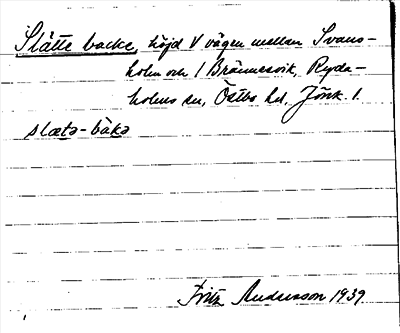 Slätte backe, höjd V vägen mellan Svans-
holm och / Brännesvik, Ryda-
holms sn, Östbo hd, Jönk. l.
slætə-bakə
Fritz Andersson 1939